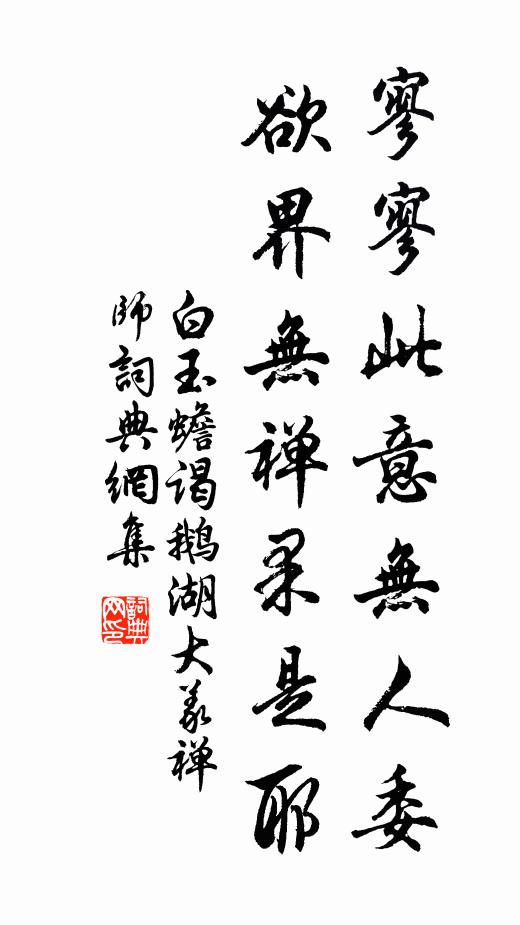 寥寥此意無人委
欲界無禅果是耶
白玉蟾谒鹅湖大义禅
師詞典網集
詞典网印